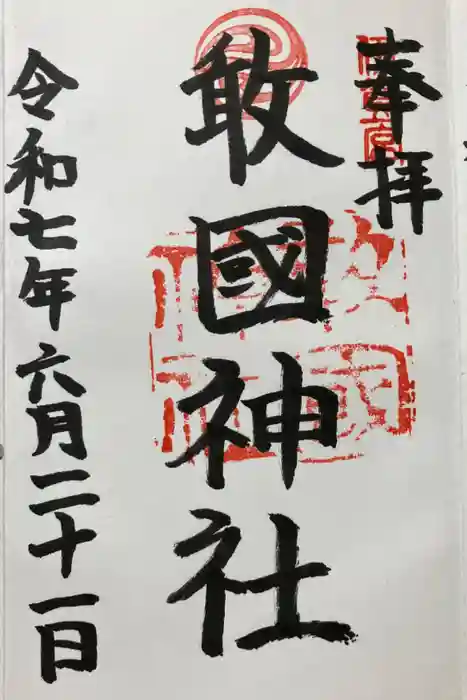 奉拝
敢國神社
令和七年六月二十一日